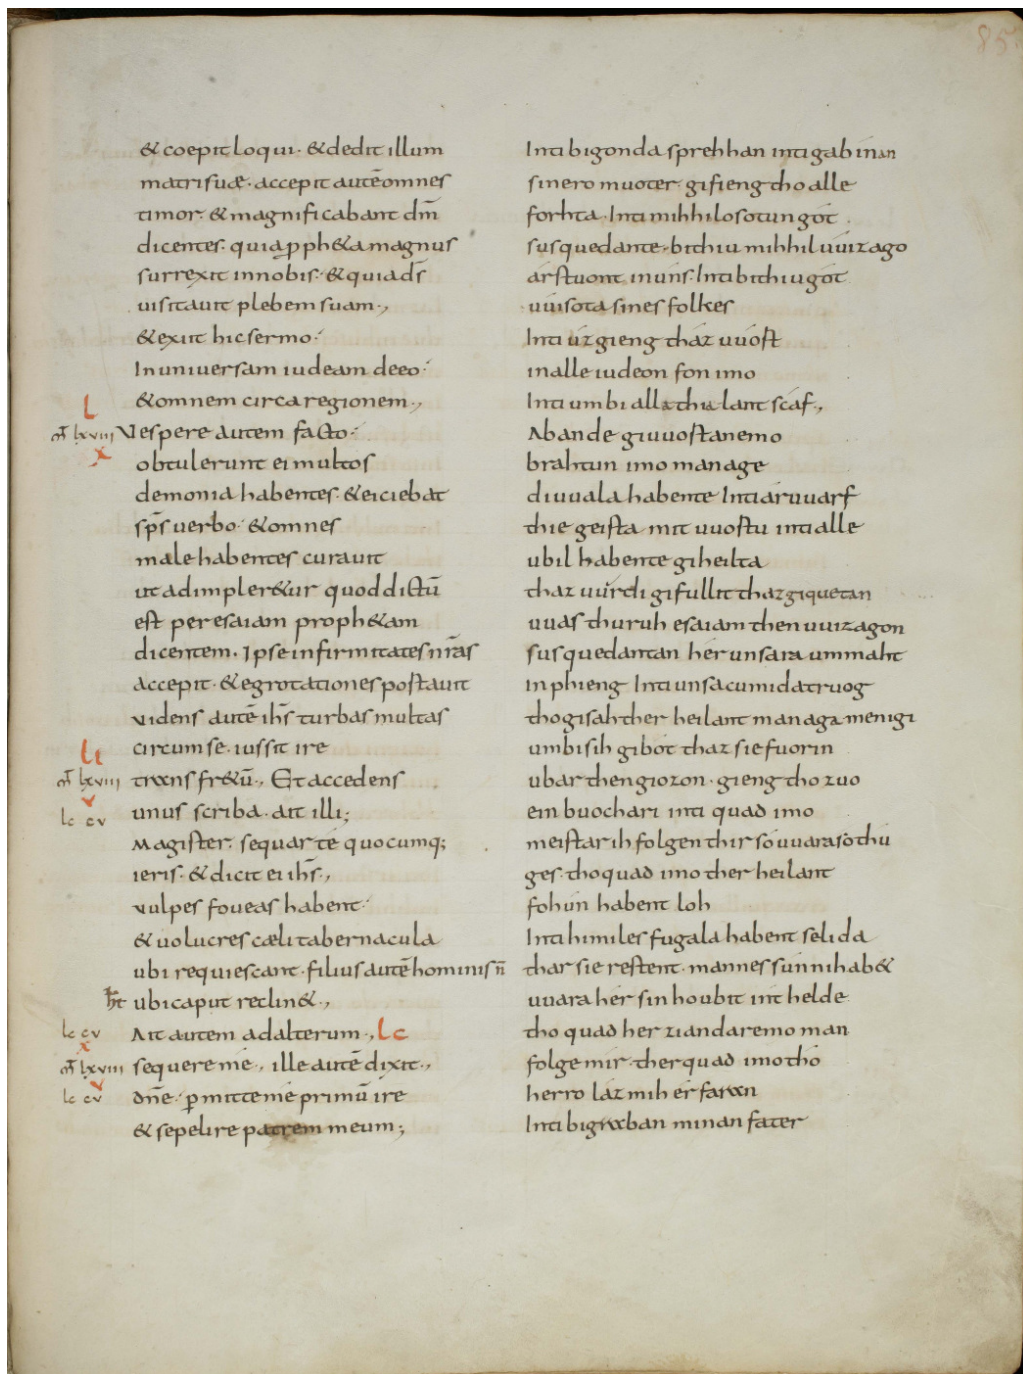 85
& coepit loqui· & dedit illum
matri suae· accepit autē omnes
timor· & magnificabant dm̄
dicentes· quia ꝓph&a magnus
surrexit in nobis· & quia ds̄
uisitauit plebem suam·,
& exiit hic sermo·
In uniuersam iudeam de eo·
& omnem circa regionem·,
L
mt̄ lxviii Vespere autem facto·
x
obtulerunt ei multos
demonia habentes· & eiciebat
sp̄s uerbo· & omnes
male habentes curauit
ut adimpler&ur quod dictū
est per esaiam proph&am
dicentem· Ipse infirmitates nr̄as
accepit· & egrotationes portauit
videns autē ihs̄ turbas multas
circum se· iussit ire
LI
mt̄ lxviii trans fr&ū·, Et accedens
v
lc cv unus scriba· ait illi;
Magister· sequar té quocumq;
ieris· & dicit ei ihs̄·,
vulpes foueas habent·
& uolucres cæli tabernacula
ubi requiescant· filius autē hominis n̄
ht ubi caput reclin&·,
lc cv Ait autem ad alterum·, Lc
x
mt̄ lxviii sequere mé·, ille autē dixit·,
v
lc cv dn̄e· ꝑmitte mé primū ire
& sepelire patrem meum;
Inti bigonda sprehhan inti gab inan
sinero muoter· gifieng tho alle
forhta· Inti mihhilosotun gót
sus quedante· bithiu mihhil uuizago
árstuont in uns· Inti bithiu gót
uuisota sines folkes
Inti úzgieng tház uuórt
in alle iudeon fon imo
Inti umbi alla thia lantscáf·,
Abande giuuortanemo
brahtun imo manage
diuuala habente Inti áruuarf
thie geista mit uuortu inti alle
ubil habente giheilta
thaz uúrdi gifullit thaz giquetan
uuas thuruh esaiam then uuizagon
sus quedantan hér unsara ummaht
inphieng Inti unsa cumida truog
tho gisah ther heilant managa menigi
umbi sih gibót thaz sie fuorin
ubar then giozon· gieng tho zuo
ein buochari inti quad imo
meistar ih folgen thir só uuara só thú
ges· tho quad imo ther heilant
fohún habent loh
Inti himiles fugala habent selida
thar sie restent· mannes sún ni hab&
uuara hér sin houbit inthelde
tho quad her zi andaremo man
folge mir· ther quad imo thó
herro láz mih ér faran
Inti bigraban minan fater